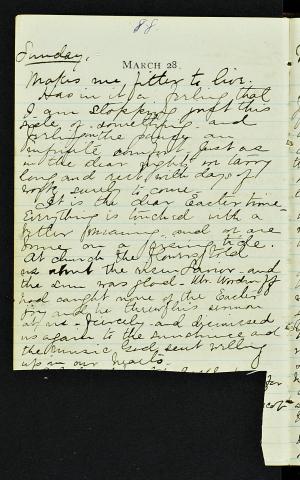 88.
Sunday.
MARCH 28.
Makes me fitter to live.
Has in it a feeling that
I am stopping just this
side of something and
feel from the shadow an
infinite comfort. Just as
in the dear night we tarry
long and rest, with days of
work surely to come.
It is the dear Easter time.
Everything is touched with a
better meaning and we are
borne on a rising tide.
At church the flowers told
us about the resurrection and
the sun was glad. Mr. Woodruff
had caught none of the Easter
joy and he threw his sermon
at us - fiercely - and dismissed
us again to the sunshine and
the music God sent welling
up in our hearts.
for